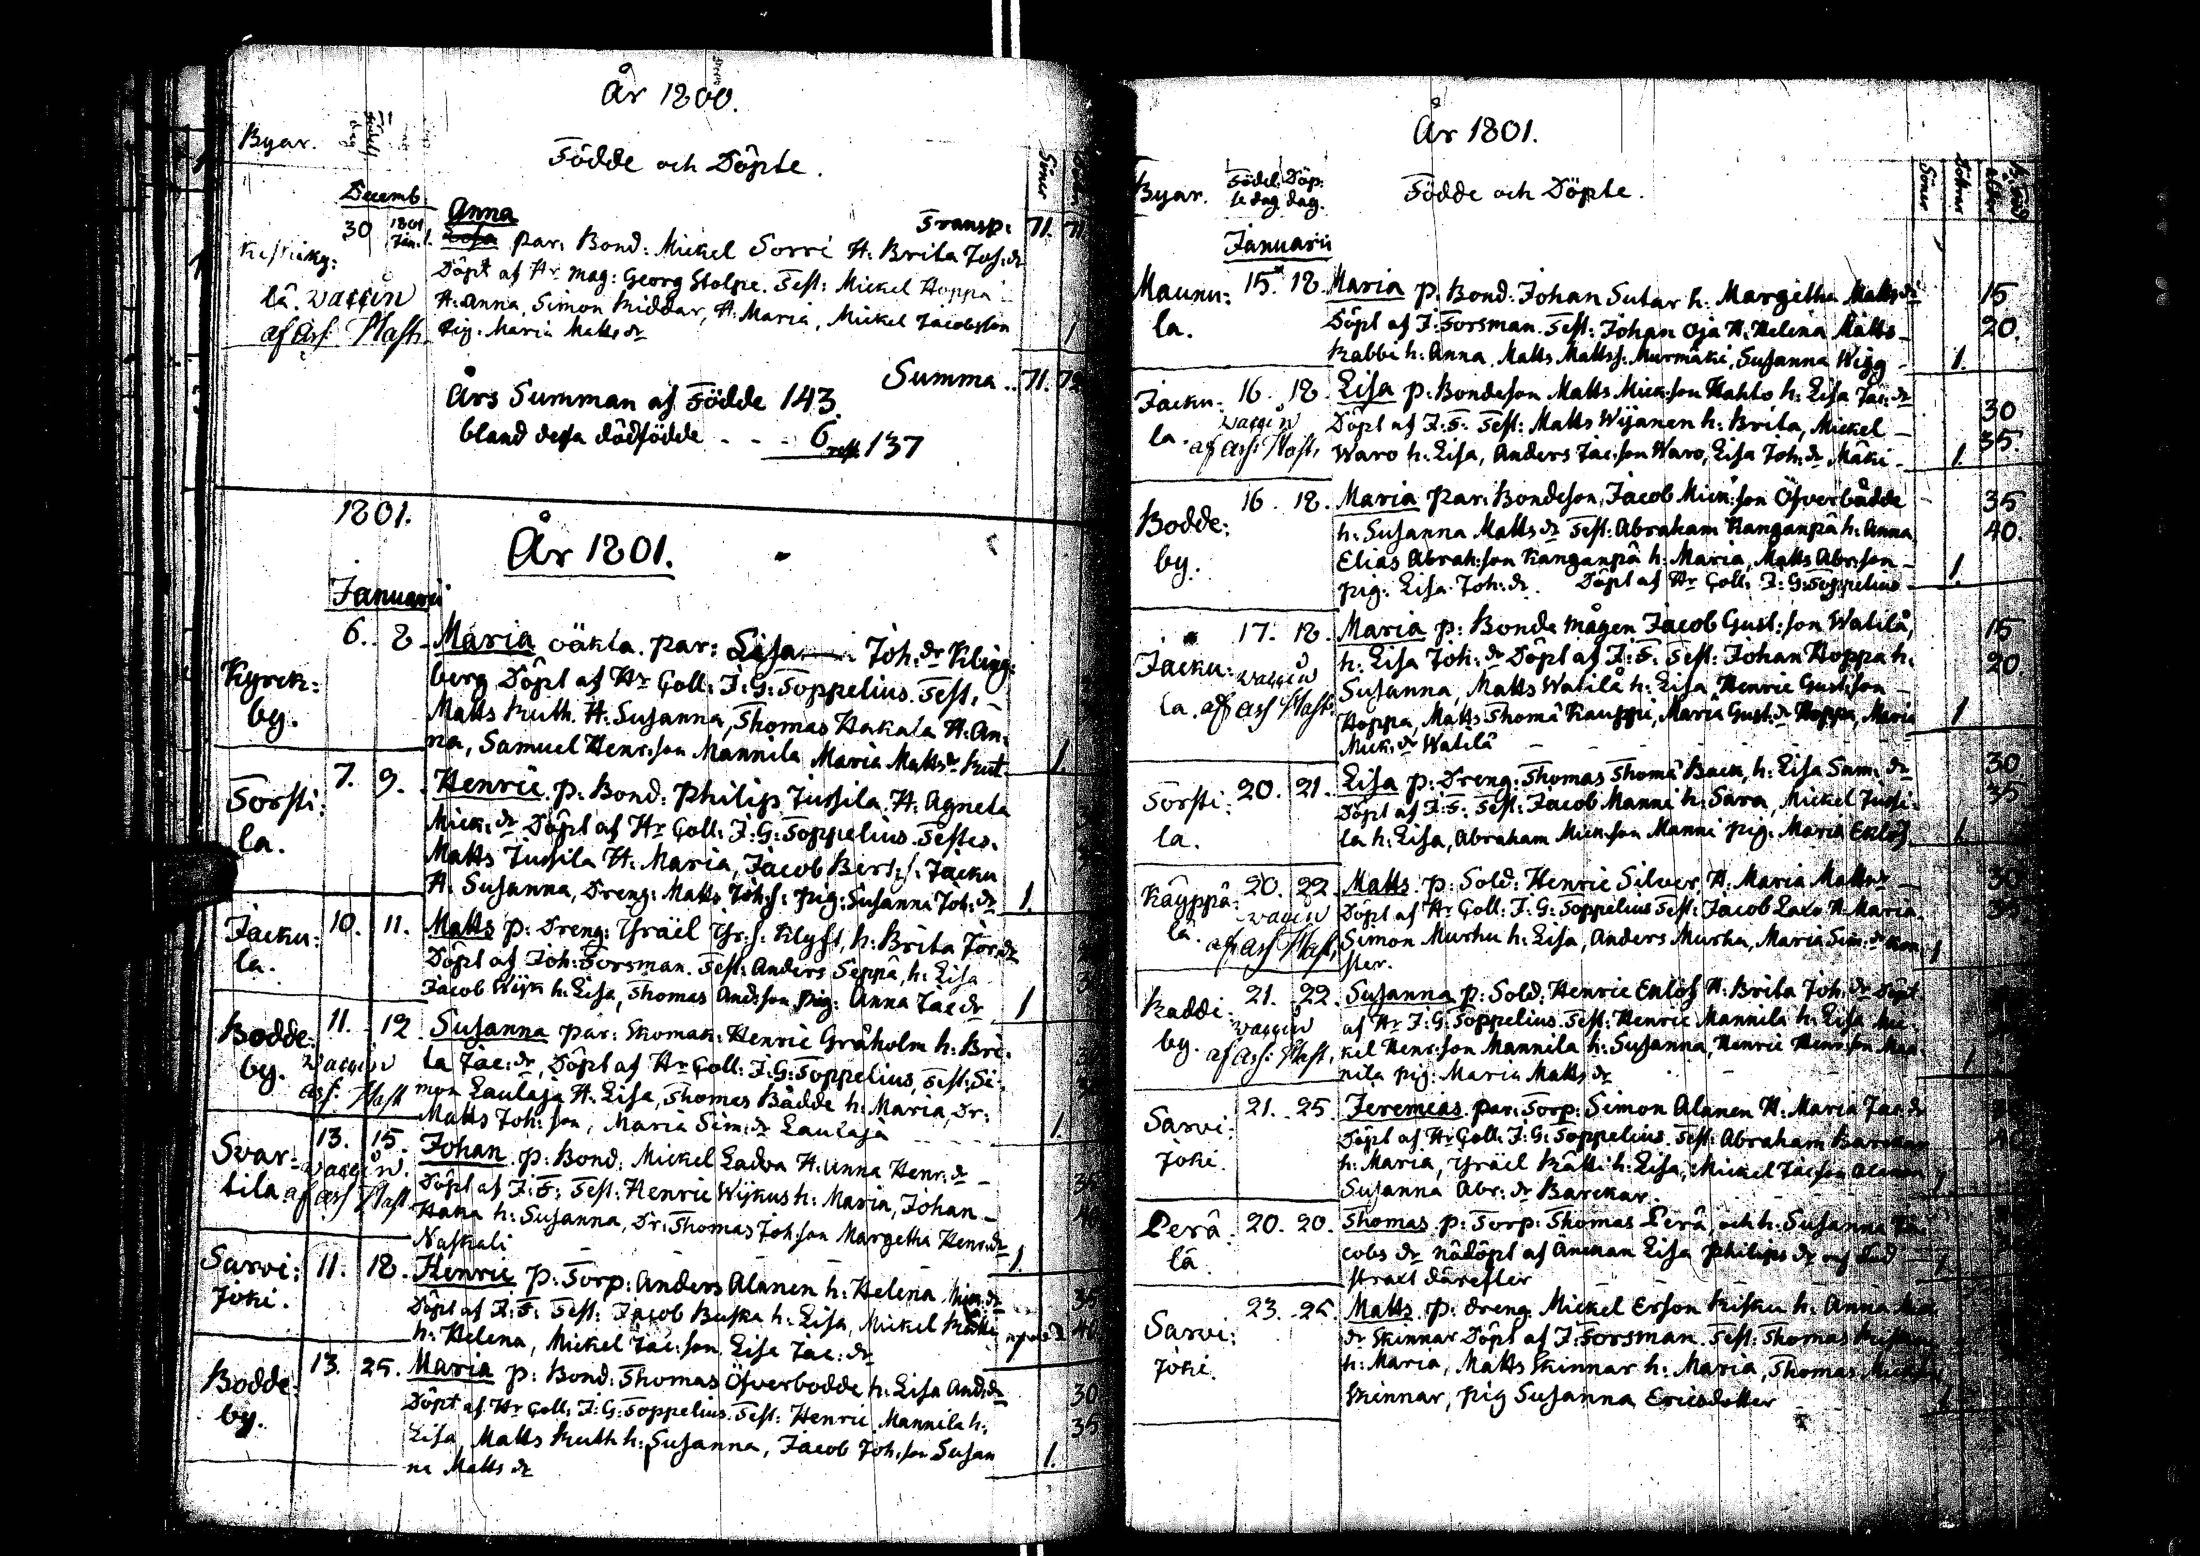 År 1800.
Byar.
Födde och Döpte.
Söner
Decemb.
30 1801 Jan: 1. Anna
Transp: 71. 71
par: Bond: Mickel Sorri H. Brita Joh: dr
Döpt af Hr Mag: Georg Stolpe. Test: Mickel Hoppa
lä. waccin H: Anna, Simon Riddar, H. Maria, Mickel Jacobsson
af ass: Hast. Pig: Maria Matts dr 1
Summa .. 71. 72
Års Summan af Födde 143.
bland dessa dödfödde - - - 6 rest 137
1801.
År 1801.
Januarii
Kyrck: by. 6. 8. Maria oäkta. par: Lisa Joh: dr Kling:
berg Döpt af Hr Coll: J: G: Toppelius. Test: -
Matts Kuth. H: Susanna, Thomas Hakala H: An:
na, Samuel Henr: son Mannila Maria Matts dr Kut 1.
Torsti: la. 7. 9. Henric p: Bond: Philip Jussila H: Agneta
Mick: dr Döpt af Hr Coll: J: G: Toppelius. Testes.
Matts Jussila H: Maria, Jacob Bert: s: Jacku
H: Susanna, Dreng: Matts Joh: s: pig: Susanna Joh: dr 1.
Jacku: la. 10. 11. Matts p: Dreng: Israël Isr: s: Klyft, h: Brita Jör: dr
Döpt af Joh: Forsman. Test: Anders Seppä, h: Lisa
Jacob Wijk h: Lisa, Thomas And: son pig: Anna Jac dr 1
Bodde: by. 11. 12. Susanna par: Skomak: Henric Gråholm h: Bri:
waccin ta Jac: dr, Döpt af Hr Coll: J: G: Toppelius, Test: Si:
ass: Hast mon Laulaja H: Lisa, Thomas Bådde h: Maria, Dr:
Matts Joh: son, Maria Sim: dr Laulaja 1.
Svar: tila 13. 15. Johan p: Bond: Mickel Ladva H: Anna Henr: dr -
waccin. Döpt af J: F: Test: Henric Wijkus h: Maria, Johan - 35
af ass Hast. Haka h: Susanna, Dr: Thomas Joh: son Margetha Henr: dr 40
Naskali 1.
Sarvi: joki. 11. 18. Henric p: Torp: Anders Alanen h: Helena Mick: dr 35
Döpt af J: F: Test: Jacob Buska h: Lisa, Mickel Kätti 40
h: Helena, Mickel Jac: son Lisa Jac: dr
Bodde: by. 13. 25. Maria p: Bond: Thomas Öfverbodde h: Lisa And: dr 30
Döpt af Hr Coll: J: G: Toppelius. Test: Henric Mannila h: 35
Lisa, Matts Kuth h: Susanna, Jacob Joh: son Susan
na Matts dr 1.
År 1801.
Byar. Födel se dag Döp: dag. Födde och Döpte. Söner Döttrar
Januarii
Maunu: la. 15. 18. Maria p: Bond: Johan Sutar h: Margetha Matts dr 15
Döpt af J: Forsman. Test: Johan Oja H: Helena Matts - 20.
Rabbi h: Anna, Matts Matts s: Murmäki, Susanna Wigg - 1.
Jacku: la. 16. 18. Lisa p: Bondeson Matts Mick: son Kahto h: Lisa Jac: dr 30
waccin Döpt af J: F: Test: Matts Wijanen h: Brita, Mickel - 35.
af ass: Hast. Waro h: Lisa, Anders Jac: son Waro, Lisa Joh: dr Mäki - 1.
Bodde: by. 16. 18. Maria par: Bondeson, Jacob Mick: son Öfverbådde - 35
h: Susanna Matts dr Test: Abraham Kanganpä h: Anna 40.
Elias Abrah: son Kanganpä h: Maria, Matts Abr: son -
pig: Lisa Joh: dr. Döpt af Hr Coll: J: G: Toppelius - 1.
Jacku: la. 17. 18. Maria p: Bonde mågen Jacob Gust: son Watilå, 15
waccin h: Lisa Joh: dr Döpt af J: F: Test: Johan Hoppa h: 20.
af ass Hast: Susanna, Matts Watilå h: Lisa, Henric Gust: son -
Hoppa, Matts Thoma Kauppi, Maria Gust: dr Hoppa, Maria 1
Mick: dr Watilå
Torsti: la. 20. 21. Lisa p: Dreng: Thomas Thoma Back, h: Lisa Sam: dr 30
Döpt af J: F: Test: Jacob Manni h: Sara, Mickel Jussi: 35
la h: Lisa, Abraham Mick: son Manni pig: Maria Enlöf. 1.
Käyppä: lä. 20. 22. Matts p: Sold: Henric Silver H: Maria Matts dr - 30
waccin Döpt af Hr Coll: J: G: Toppelius Test: Jacob Laxo H: Maria. 35
af ass Hast. Simon Murhu h: Lisa, Anders Murha, Maria Sim: dr Mon: 1
ster.
Kaddi: by. 21. 22. Susanna p: Sold: Henric Enlöf H: Brita Joh: dr Döpt
waccin af Hr J: G: Toppelius. Test: Henric Mannila h: Lisa Mic:
af ass: Hast. kel Henr: son Mannila h: Susanna, Henric Henr: son Man: 1
nila pig: Maria Matts dr
Sarvi: joki. 21. 25. Jeremias par: Torp: Simon Alanen H: Maria Jac dr
Döpt af Hr Coll: J: G: Toppelius. Test: Abraham Barckar
h: Maria, Israël Kätti h: Lisa, Mickel Jac: son Alanen
Susanna Abr: dr Barckar. 1
Perä: lä. 20. 20. Thomas p: Torp: Thomas Perä, och h: Susanna Ja:
cobs dr nödöpt af Änckan Lisa Philips dr och död 1.
straxt därefter
Sarvi: joki. 23. 25. Matts p: dreng Mickel Erson Kisku h: Anna
dr Skinnar Döpt af J: Forsman. Test: Thomas
h: Maria, Matts Skinnar h: Maria, Thomas
Skinnar, pig Susanna Ericsdotter 1